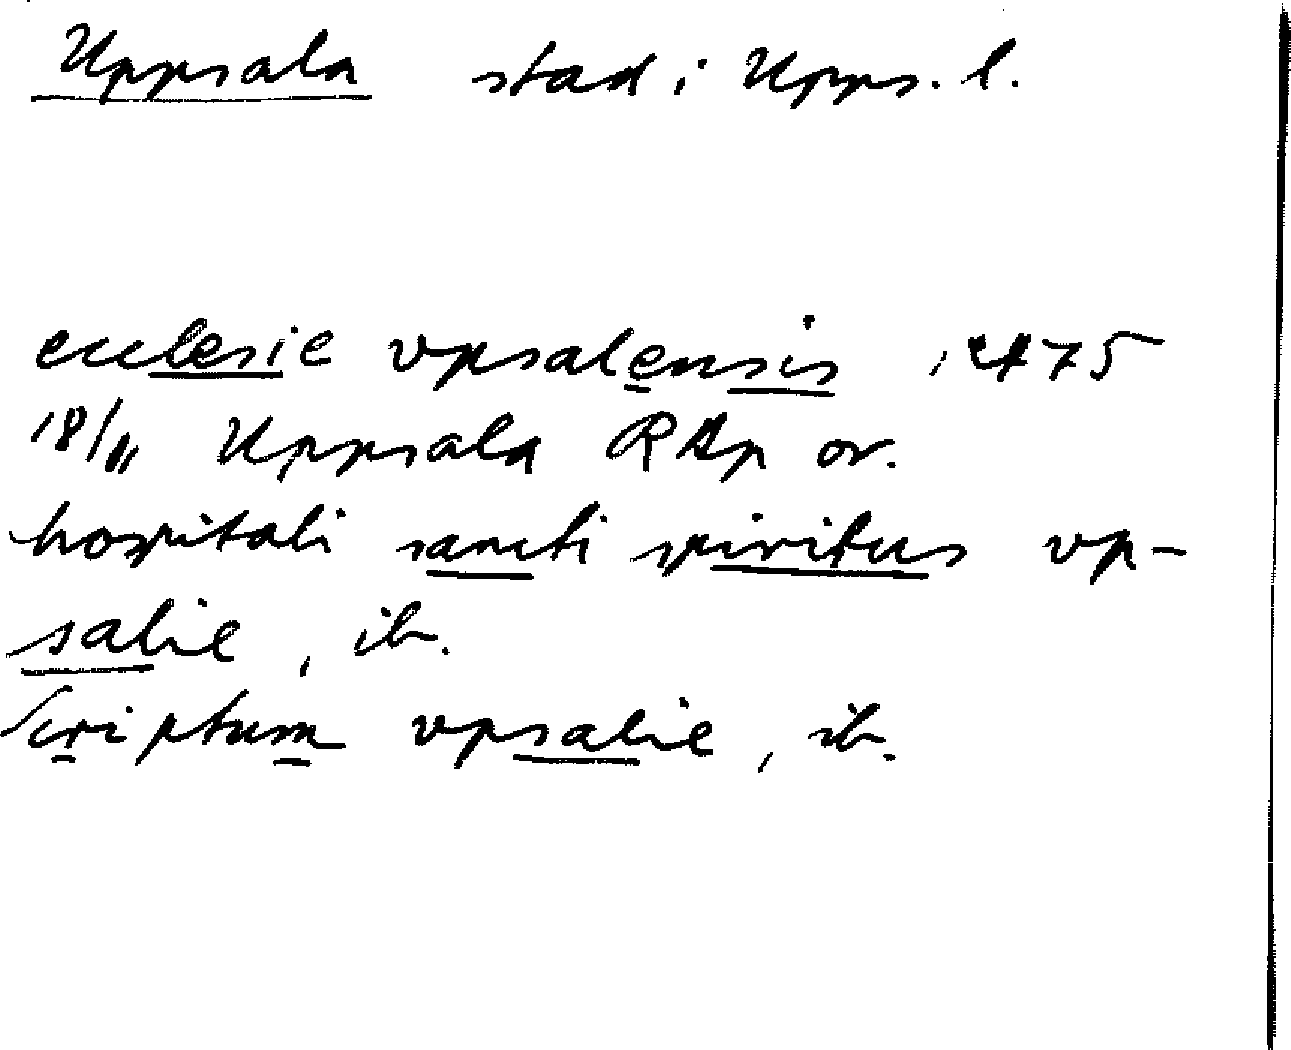 Uppsala stad i Upps. l.
ecclesie vpsalensis, 1475
18/11 Uppsala RAp or.
hospitali sancti spiritus vp-
salie, ib.
Scriptum vpsalie, ib.